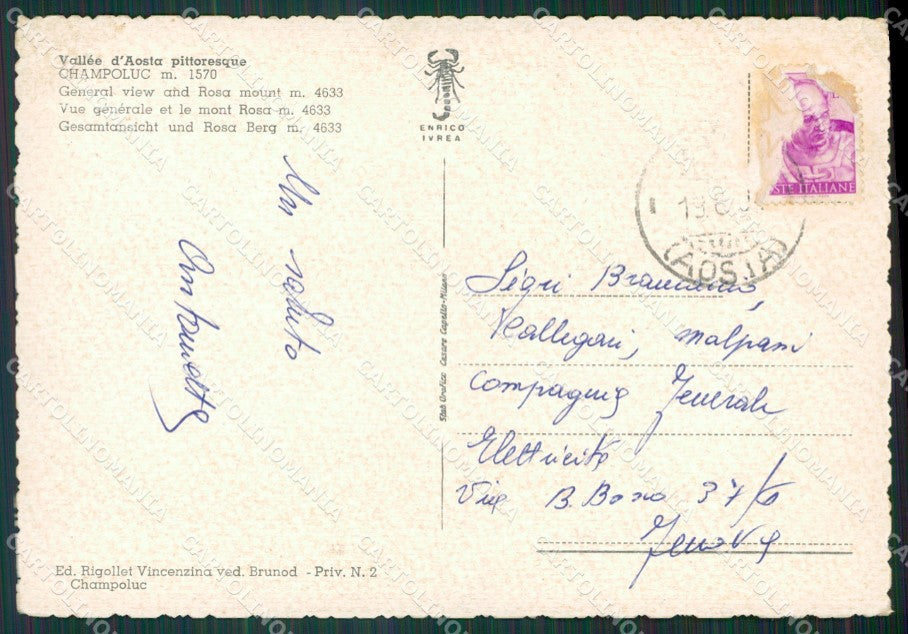 Vallée d'Aosta pittoresque
CHAMPOLUC m. 1570
General view and Rosa mount m. 4633
Vue générale et le mont Rosa m. 4633
Gesamtansicht und Rosa Berg m. 4633
ENRICO
IVREA
STE ITALIANE
(AOSTA)
Un saluto
Stab Grafico Cesare Capello-Milano
Sigri
Callegari, Malpani
Compagnia Generale
Elettricità
Via B. Bosco 37/6
Genova
Ed. Rigollet Vincenzina ved. Brunod - Priv. N. 2
Champoluc
CARTOLINOMANIA